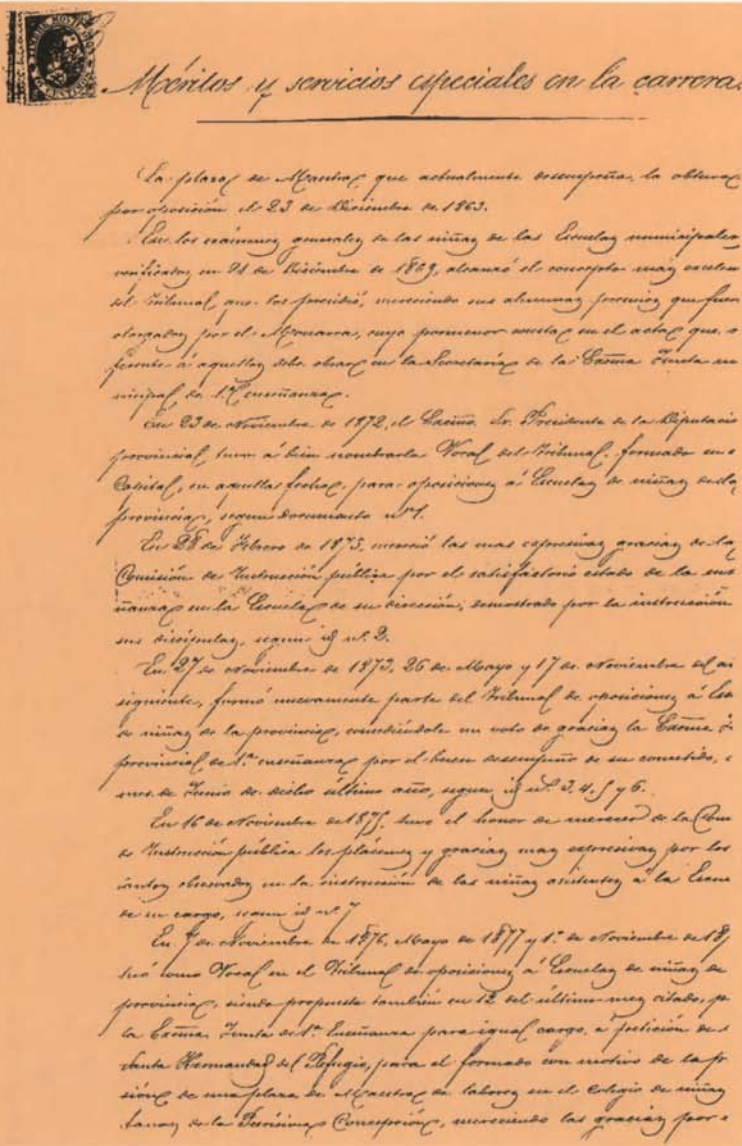 Méritos y servicios especiales en la carrera.
La plaza de Maestra que actualmente desempeña, la obtuvo
por oposición el 23 de Diciembre de 1863.
En los exámenes generales de las niñas de las Escuelas municipales
verificados en de Diciembre de 1869, alcanzó el concepto mas excelen
del Tribunal, que los presidió, mereciendo sus alumnas premios que fuer
otorgados por el Monarca, cuyo pormenor consta en el acta que, r
ferente á aquellos debe obrar en la Secretaría de la Excma Junta mu
nicipal de 1ª enseñanza.
En 23 de Noviembre de 1872, el Excmo. Sr. Presidente de la Diputació
provincial, tuvo á bien nombrarla Vocal del Tribunal, formado en e
Capital, en aquella fecha, para oposiciones á Escuelas de niñas de la
provincia, segun documento nº 1.
En 28 de Febrero de 1875, mereció las mas expresivas gracias de la
Comisión de Instrucción pública por el satisfactorio estado de la ens
ñanza en la Escuela de su dirección, demostrado por la instrucción
sus discípulas, segun id nº. 2.
En 27 de Noviembre de 1873, 26 de Mayo y 17 de Noviembre del añ
siguiente, formó nuevamente parte del Tribunal de oposiciones á Esc
de niñas de la provincia, concediéndole un voto de gracias la Excma J
provincial de 1ª enseñanza por el buen desempeño de su cometido, e
mes de Junio de dicho último año, segun id nº. 3. 4. 5 y 6.
En 16 de Noviembre de 1875, tuvo el honor de merecer de la Com
de Instrucción pública los plácemes y gracias mas expresivas por los
lantos observados en la instrucción de las niñas asistentes á la Escue
de su cargo, segun id nº. 7
En 7 de Noviembre de 1876, Mayo de 1877 y 1º de Noviembre de 18
tuó como Vocal en el Tribunal de oposiciones á Escuelas de niñas de
provincia, siendo propuesta tambien en 12 del último mes citado, p
la Excma. Junta de 1ª Enseñanza para igual cargo, á petición de
Santa Hermandad del Refugio, para el formado con motivo de la pr
sión de una plaza de Maestra de labores en el Colegio de niñas
fanas de la Purísima Concepción, mereciendo las gracias por e